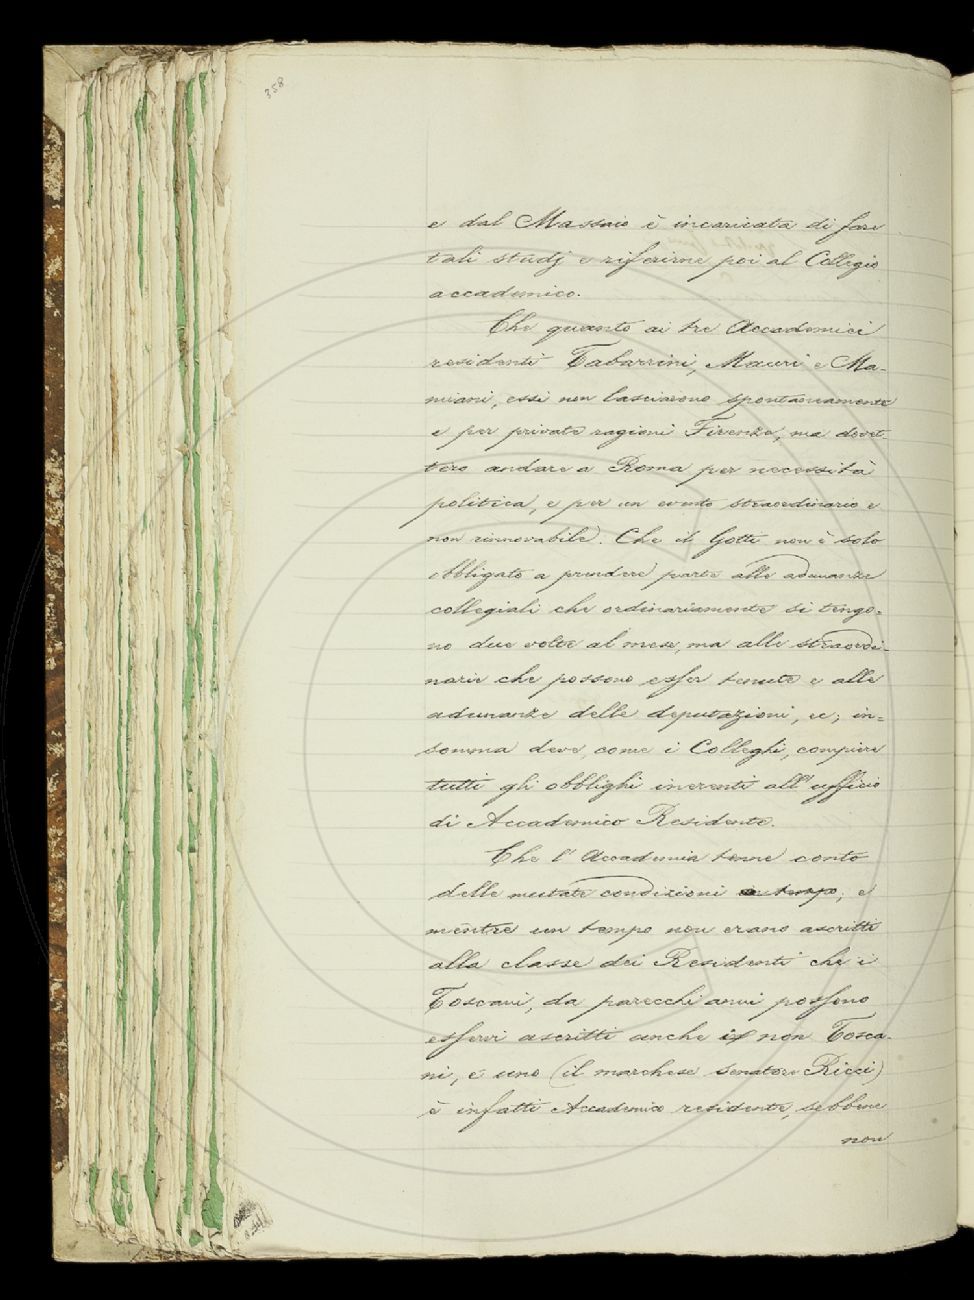 358
e dal Massaio è incaricata di fare
tali studj e riferirne poi al Collegio
accademico.
Che quanto ai tre Accademici
residenti Tabarrini, Mauri e Ma-
miani, essi non lasciarono spontaneamente
e per private ragioni Firenze, ma dovet-
tero andare a Roma per necessità
politica, e per un evento straordinario e
non rinnovabile. Che il Gotti non è solo
obbligato a prendere parte alle adunanze
collegiali che ordinariamente si tengo-
no due volte al mese, ma alle straordi-
narie che possono esser tenute e alle
adunanze delle deputazioni, ec; in-
somma deve, come i Colleghi, compiere
tutti gli obblighi inerenti all'ufficio
di Accademico Residente.
Che l'Accademia tenne conto
delle mutate condizioni tempo; e
mentre un tempo non erano ascritti
alla classe dei Residenti che i
Toscani, da parecchi anni possono
esservi ascritti anche non Tosca-
ni, e uno (il marchese senatore Ricci)
è infatti Accademico residente, sebbene
non